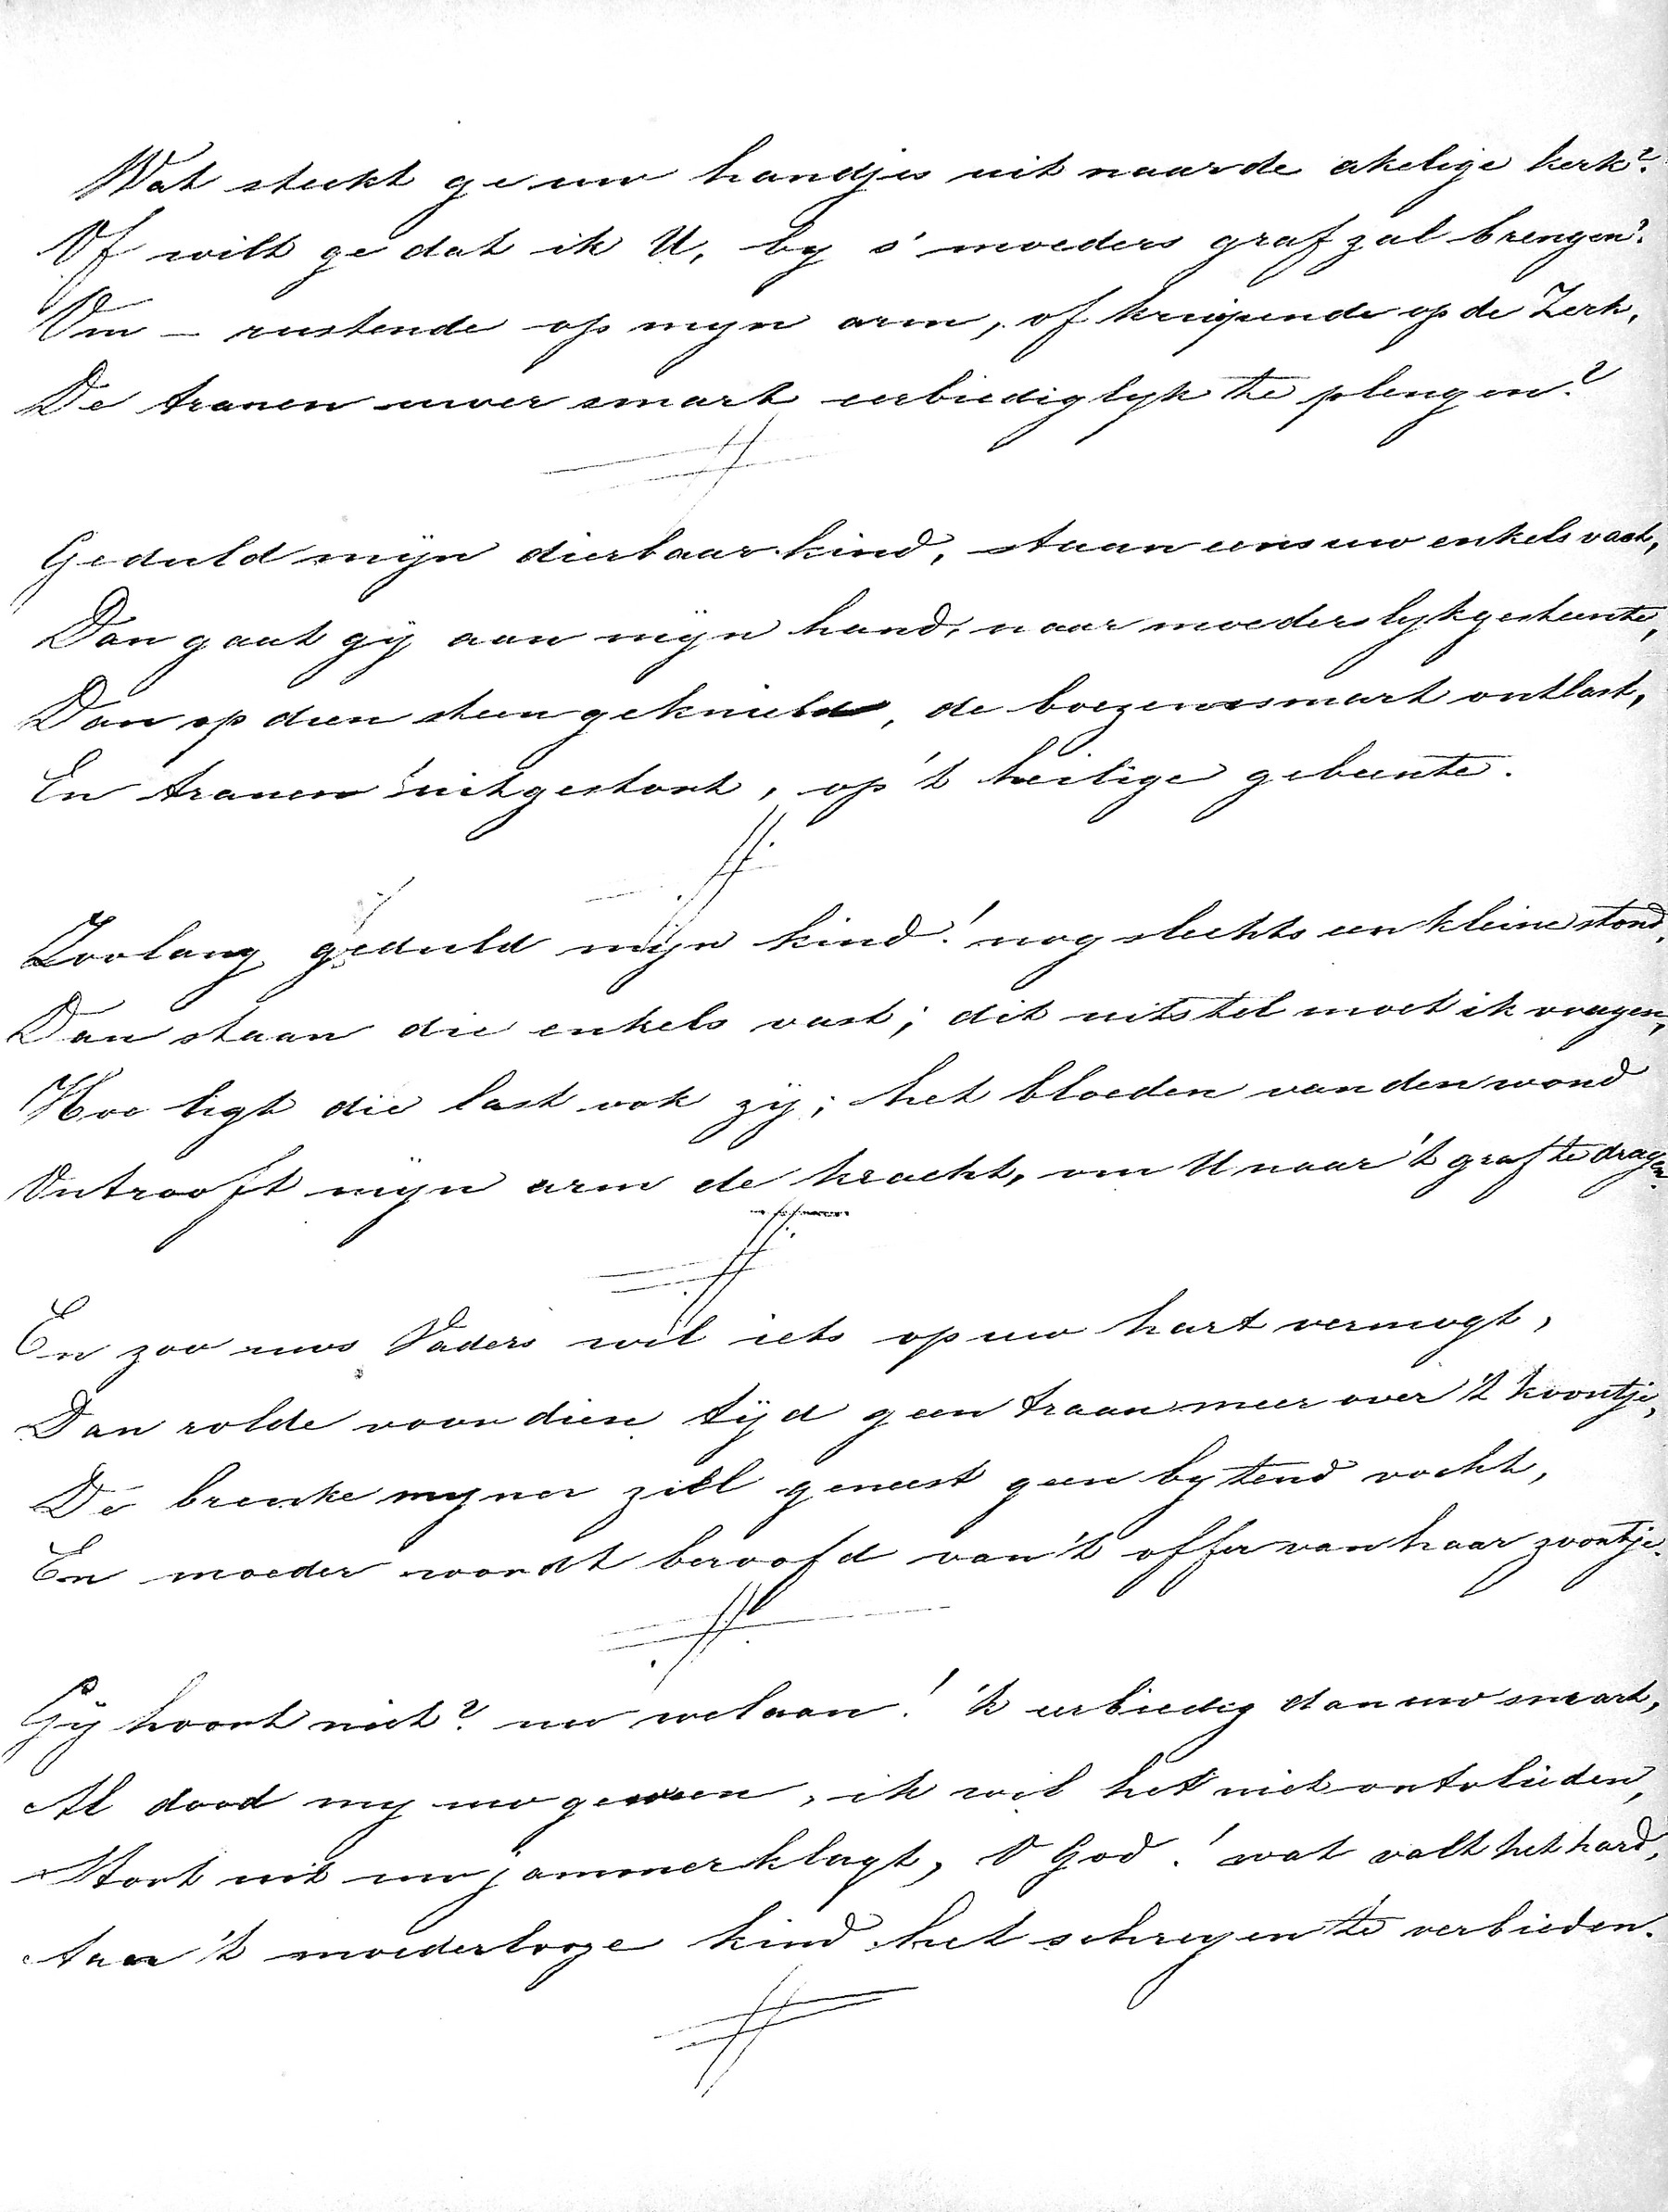 Wat steekt ge uw handjes uit naar de akelige kerk?
Of wilt ge dat ik U, by s' moeders graf zal brengen?
Om – rustende op myn arm, of kruipende op de Zerk,
De tranen uwer smart eerbiediglyk te plengen?
Geduld mijn dierbaar kind, staan eens uw enkels vast,
Dan gaat gij aan mijn hand, naar moeders lykgesteente,
Dan op dien steen geknield, de boezemsmart ontlast,
En tranen uitgestort, op 't heilige gebeente.
Zoolang geduld mijn kind! nog slechts een kleine stond,
Dan staan die enkels vast; dit uitstel moet ik vragen,
Hoe ligt die last ook zij; het bloeden van den wond
Ontrooft mijn arm de kracht, om U naar 't graf te dragen.
En zoo uws Vaders wil iets op uw hart vermogt,
Dan rolde voor dien tijd geen traan meer over 't koontje,
De breuke myner ziel geneest geen bytend vocht,
En moeder wordt beroofd van 't offer van haar zoontje.
Gij hoort niet? nu welaan! 'k eerbiedig dan uw smart,
Al dood my uw geween, ik wil het niet ontvlieden,
Stort uit uw jammerklagt, O God! wat valt het hard,
Aan 't moederlooze kind het schreyen te verbieden.